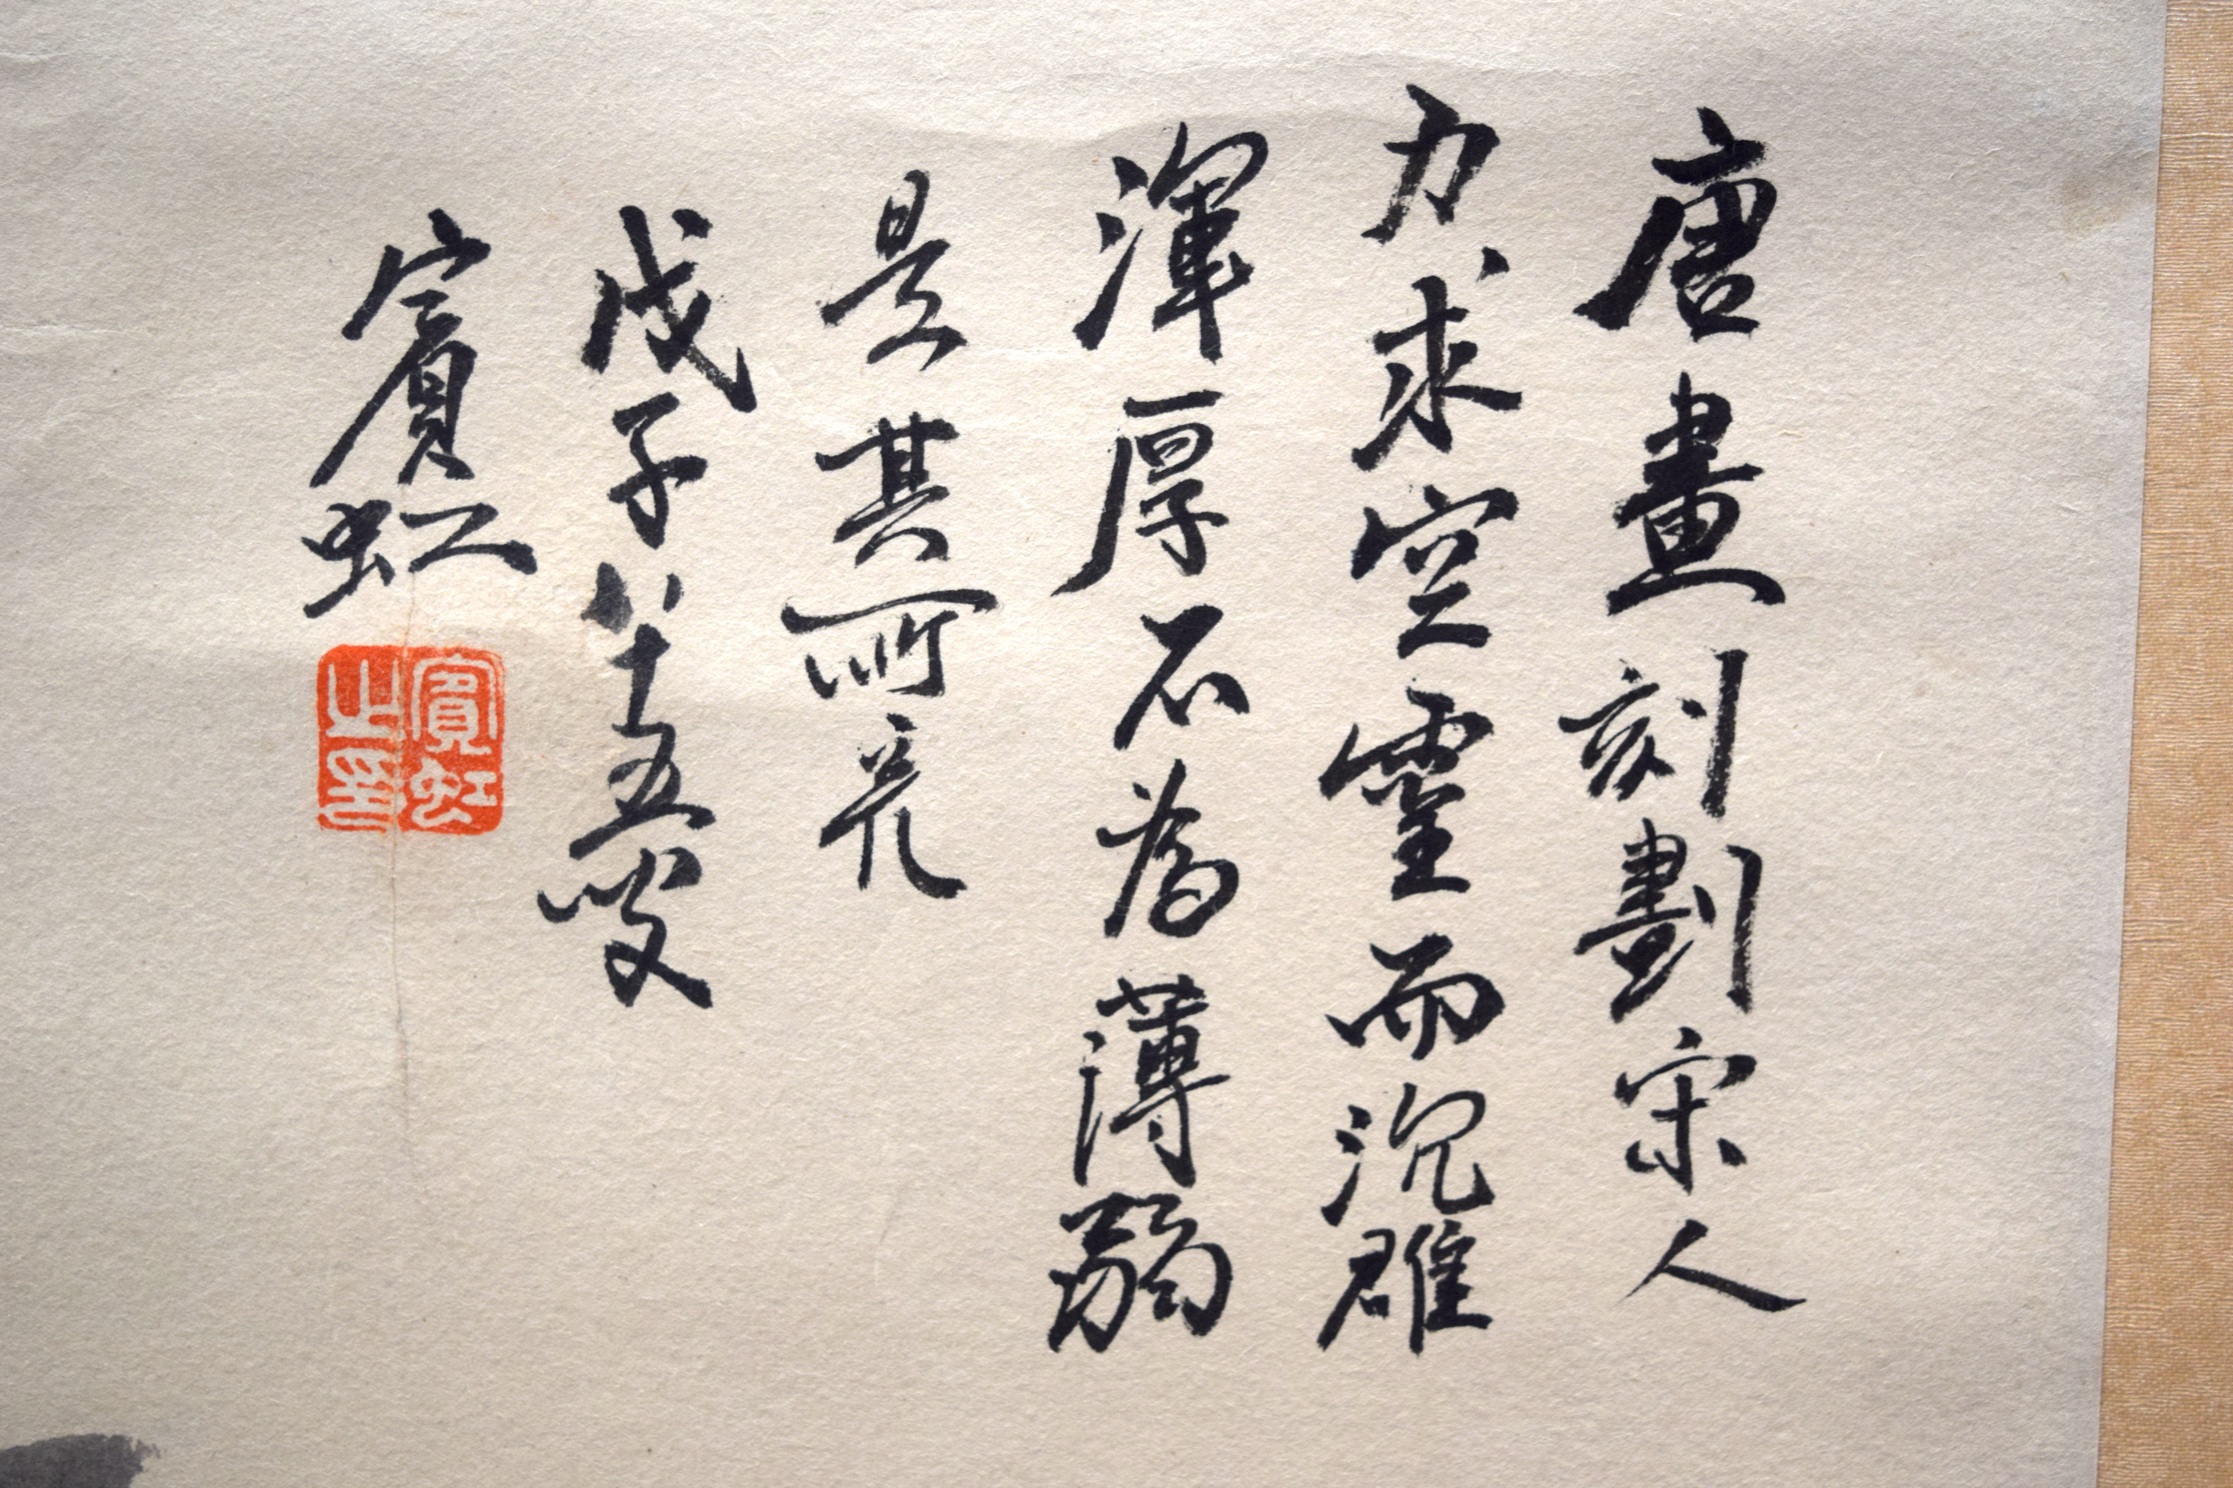 唐畫刻劃宋人
力求空靈而沉雄
渾厚不為薄弱
是其所長
戊子八十五叟
賓虹
賓虹
之印